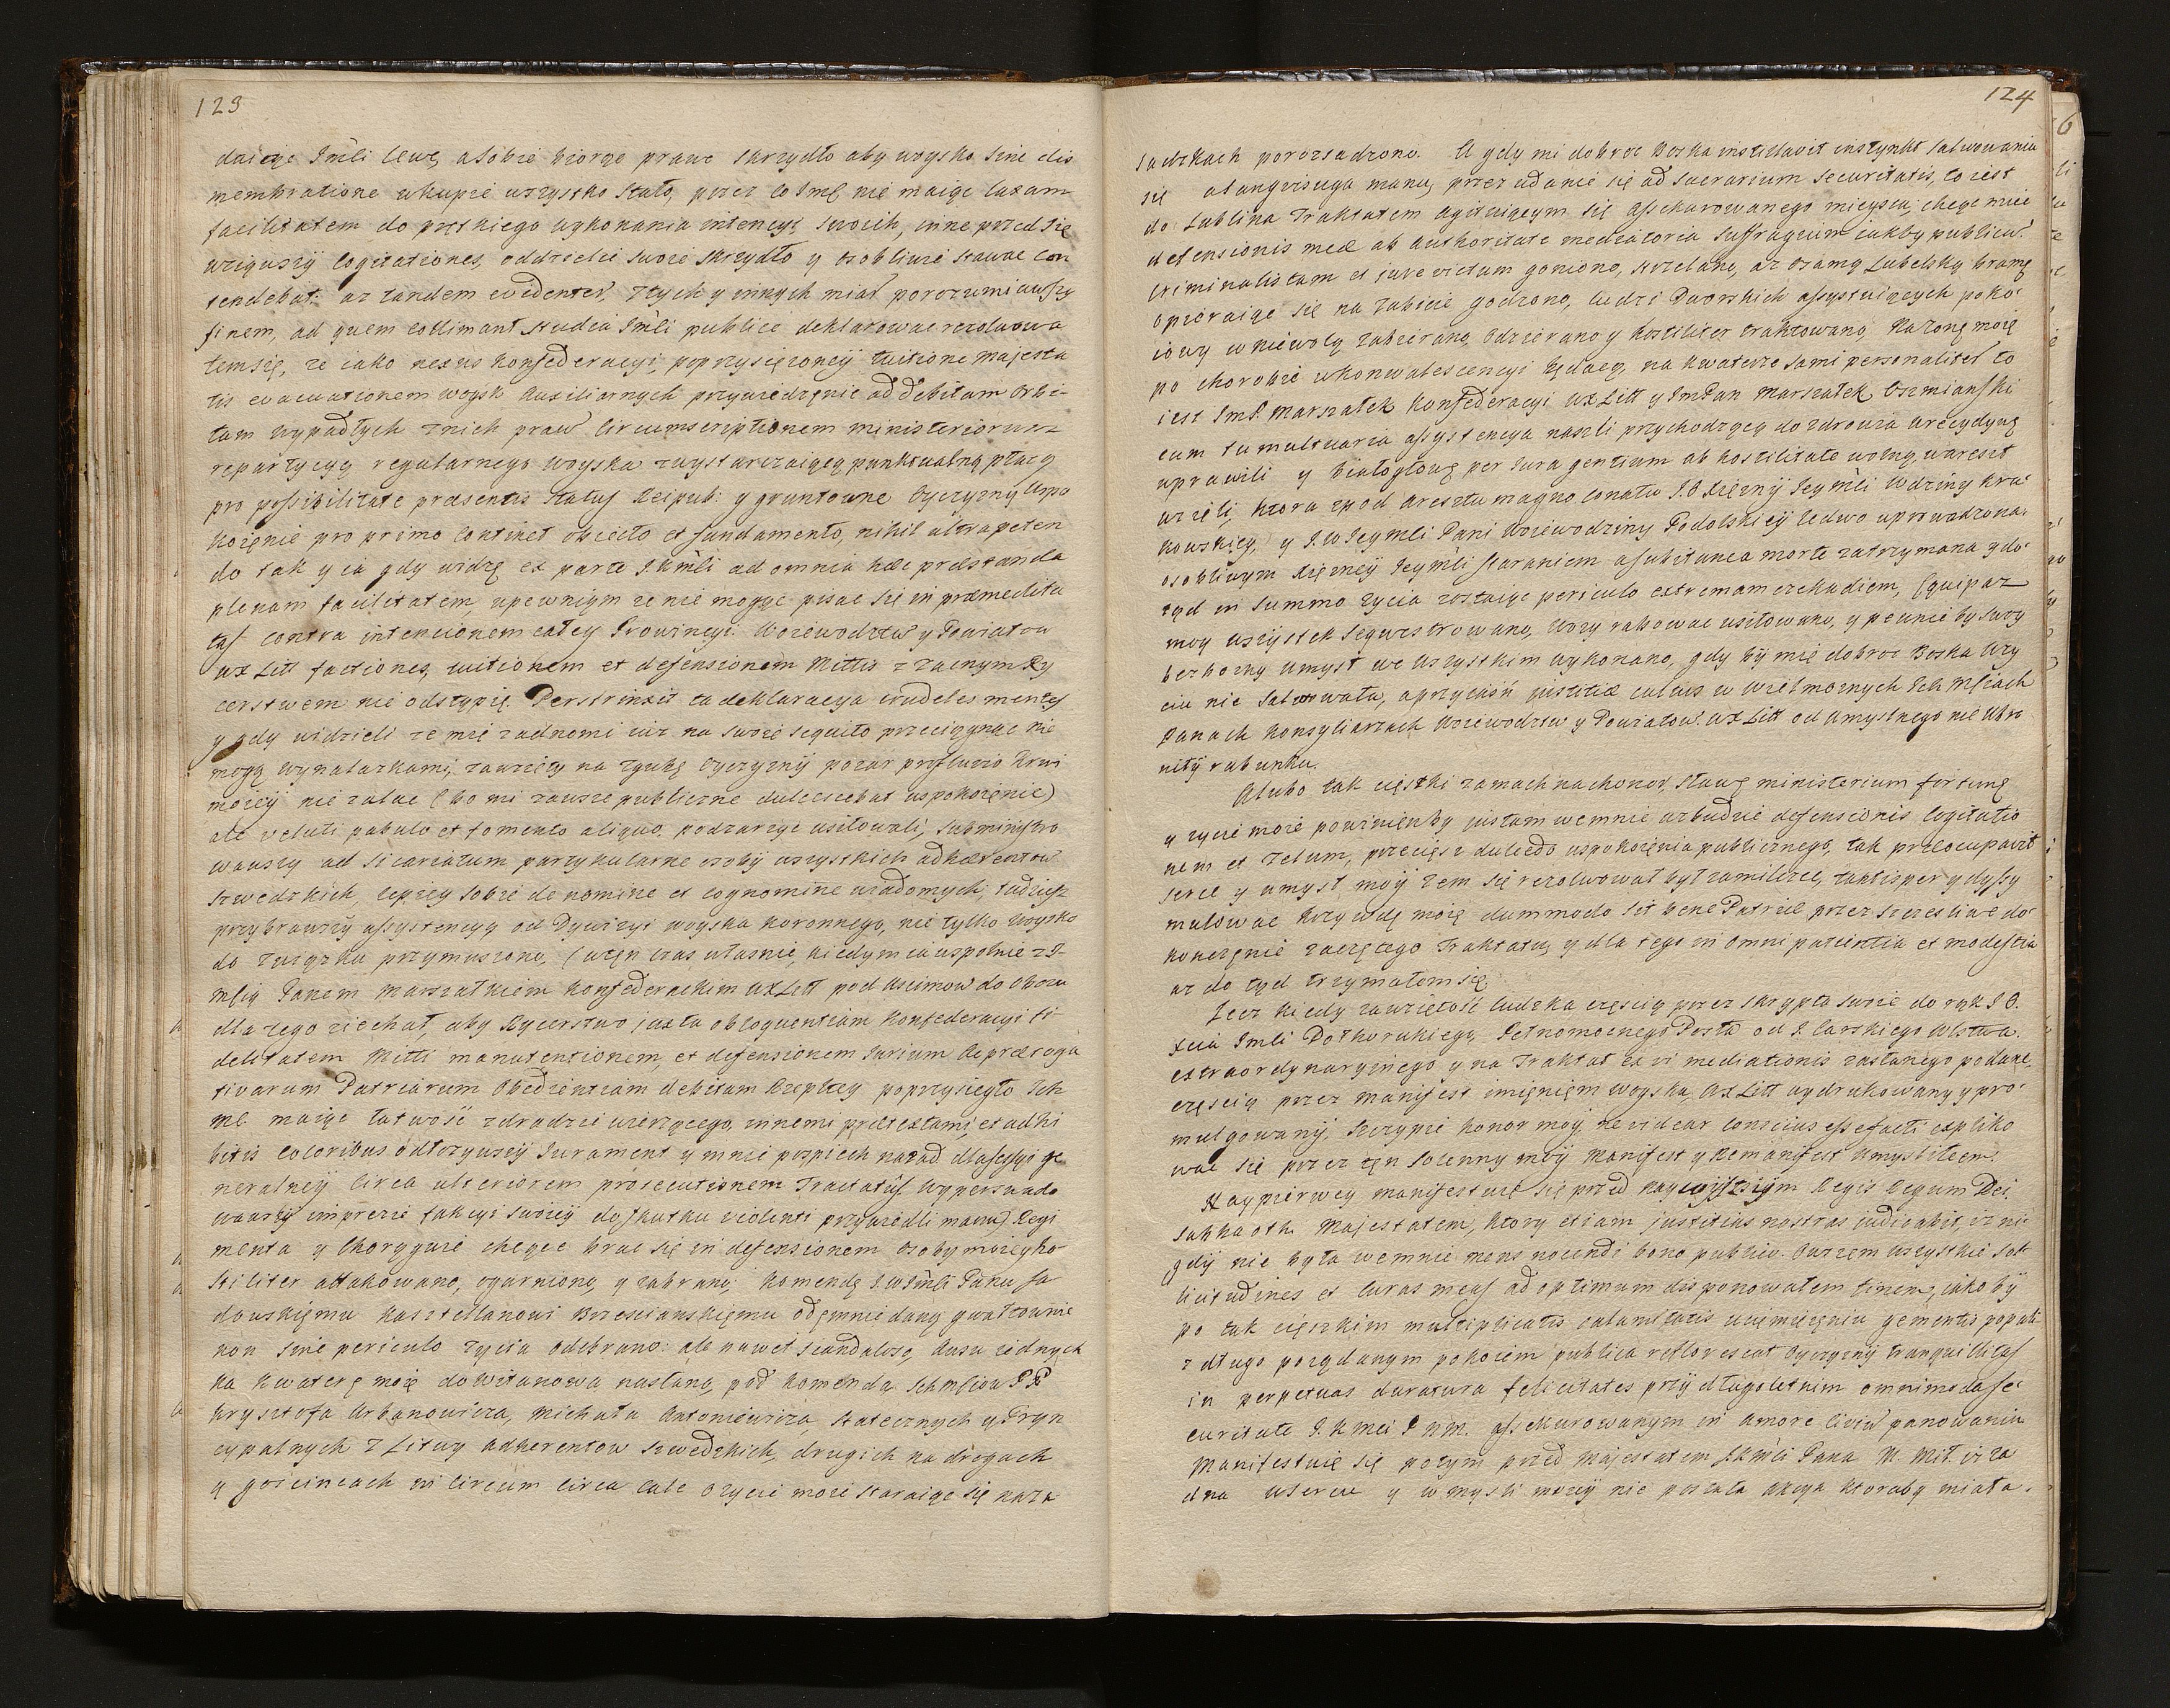 123
daiąc Imći lewe, a sobie biorąc prawe skrzydło aby woysko sine dis
membratione w kupie wszystko stało, przez co Imć nie maiąc laxam
facilitatem do prętkiego wykonania intencyi swoich, inne przed się
wziąwszy cogitationes, oddzielić swoie skrzydło y osobliwie stawać con
tendebat: aż tandem evidenter, z tych y innych miar porozumiawszy
finem, ad quem collimant studia Imći publice deklarować rezolwowa
łem się, że iako nexus konfederacyi, poprzysiężoney tuitione Majesta
tis evacuationem woysk auxiliarnych przywiedzenie ad debitam orbi-
tam wypadłych z nich praw circumscriptionem ministeriorum
repartycyą regularnego woyska z wystarczaiącą punktualną płacą
pro possibilitate praesentis status Reipub: y gruntowne Oyczyzny uspo
koienie pro primo continet obiecto et fundamento, nihil ultra peten
do tak y ia gdy widzę ex parte J.K.Mći ad omnia haec praestanda
plenam facilitatem, upewniam że nie mogąc pisać się in praemedita
tas contra intencionem całey Prowincyi: Woiewodztw y Powiatow
WXLitt factiones, tuitionem et defensionem Mttis z zacnym Ry
cerstwem nie odstąpię. Perstrinxit ta deklaracya crudeles mentes
y gdy widzieli że mię żadnemi iuż na swoie sequito przeciągnąć nie
mogą wynalazkami, zawzięty na zgubę Oyczyzny pożar profluvio krwi
moiey nie zalać (bo mi zawsze publiczne dulcescebat uspokoienie)
ale veluti pabulo et fomento aliquo, podżarzyć usiłowali, subministro
wawszy ad sicariatum partykularne osoby wszystkich adhaerentow
szwedzkich, lepiey sobie de nomine et cognomine wiadomych, tudziesz
przybrawszy assystencyą od Dywizyi woyska koronnego, nie tylko woysko
do związku przymuszono, (w ten czas własnie, kiedym ia wspolnie z J-
Mścią Panem Marszałkiem Konfederackim WXLitt pod Uscimow do Obozu
dla tego ziechał, aby Rycerstwo juxta obloquentiam Konfederacyi fi-
delitatem Mtti manutentionem, et defensionem Jurium ac praeroga
tivarum Patriarum obedientiam debitam Rzeplitey poprzysięgło Ich
Mć. maiąc łatwość zdradzić wierzącego, innemi praetextami, et adhi
bitis coloribus odłożywszy Jurament y mnie pospiech nazad dla sessyi ge
neralney circa ulteriorem prosecutionem Tractatus wyperswado
wawszy imprezie fakcyi swoiey do skutku violenti przywiedli manu) Regi
menta y Chorągwie chcące brać się in defensionem osoby moiey ho
stiliter attakowano, ogarniono, y zabrano, komendę J.W.Imći Panu Sa
dowskiemu Kasztellanowi Brzescianskiemu odemnie daną gwałtownie
non sine periculo życia odebrano: ale nawet scandalose, ausu iednych
na kwaterę moię do Witanowa nasłano, pod komendą Ichmsciow PP
Krysztofa Urbanowicza, Michała Antoniewicza, statecznych y Pryn
cypalnych z Litwy adherentow szwedzkich, drugich na drogach
y goscincach in circum circa całe o życie moie staraiąc się na za
124
sadzkach porozsadzono. A gdy mi dobroć Boska instillavit instynkt salwowania
się ab angvisuga manu, przez udanie się ad sacrarium securitatis, to iest
do Lublina Traktatem agituiącym się assekurowanego mieysca, chcąc mieć
defensionis meae ab authoritate mediatoria suffragium iakby publicum
criminalistam et jure victum goniono, strzelano, aż o samą Lubelską bramę
opieraiąc się na zabicie godzono, ludzi Dworskich assystuiących poko-
iowy w niewolą zabierano, odzierano y hostiliter traktowano, na żonę moię
po chorobie w konwalescencyi będącą, na kwaterze sami personaliter to
iest Imć. Marszałek Konfederacyi WXLitt y Im Pan Marszałek Oszmianski
cum tumultuaria assystencya naszli przychodzącą do zdrowia w recydywę
wprawili y białogłowę per Jura gentium ab hostilitate wolną, w areszt
wzięli, ktora z pod aresztu magno conatu J.O.Xiężny Jeymći Wdziny Kra-
kowskiey, y J.W.Jeymći Pani Woiewodziny Podolskiey ledwo uprowadzona
osobliwym Xiężney Jeymći staraniem a subitanea morte zatrzymana y do
tąd in summo życia zostaiąc periculo extremam czeka diem, Equipaż
moy wszystek sequestrowano, wozy rabować usiłowano, y pewnie by swoy
bezbożny umysł we wszystkim wykonano, gdyby mię dobroć Boska w ży
ciu nie salwowała, a przyiaźń justitiae cultus w Wielmożnych Ich Mściach
Panach Konsyliarzach Woiewodztw y Powiatow WXLitt od umyslnego nie ubro
niły rabunku.
A lubo tak cięszki zamach na honor, sławę ministerium fortunę
y życie moie powinienby justam we mnie wzbudzić defensionis cogitatio
nem et zelum, przecięsz dulcedo uspokoienia publicznego, tak praeoccupavit
serce y umysł moy żem się rezolwował był zamilczeć, tantisper y dyssy
mulować krzywdę moię dummodo sit bene Patriae przez szczesliwe do-
konczenie zaczętego Traktatu, y dla tego in omni patientia et modestia
aż do tąd trzymałem się.
Lecz kiedy zawziętość ludzka częscią przez skrypta swoie do rąk J.O.
Xcia Imći Dołhorukiego, Pełnomocnego Posła od J. Carskiego Wlitwa.
extraordynaryinego y na Traktat ex vi mediationis zasłanego podane,
częscią przez manifest imieniem woyska WXLitt wydrukowany y pro-
mulgowany, szczypie honor moy ne videar conscius esse facti expliko
wać się przez ten solenny moy Manifest y Remanifest umysliłem.
Naypierwey manifestuię się przed naywyższym Regis Regum Dei
Sabbaoth Majestatem, ktory etiam justitias nostras iudicabit, iż ni-
gdy nie była we mnie mens nocendi bono publico. Owszem wszystkie sol-
licitudines et curas meas ad optimum disponowałem finem, iakoby
po tak cięszkim multiplicatis calamitatis uciemiężeniu gementis populi
z długo pożądanym pokoiem publica reflorescat Oyczyzny tranquillitas
in perpetuas duratura felicitates przy długoletnim omnimoda se-
curitate J.K.Mci P.N.M. assekurowanym in amore civium panowaniu
Manifestuię się potym przed Majestatem J.K.Mći Pana M. Mił. iż ża
dna w sercu y w mysli moiey nie postała akcya ktoraby miała